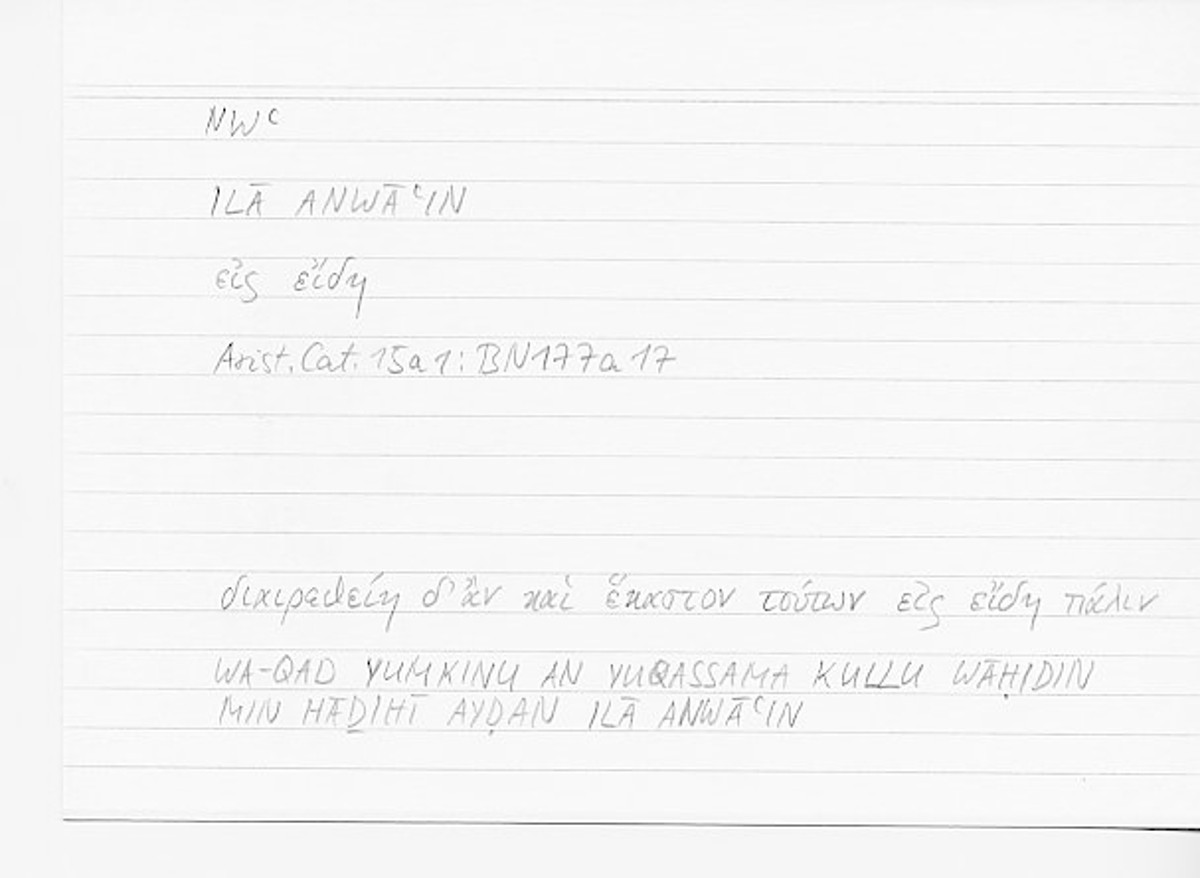 NWʿ
ILĀ ANWĀʿIN
εἰς εἴδη
Arist. Cat. 15a1: BN177a17
διαιρεθείη δ' ἂν καὶ ἕκαστον τούτων εἰς εἴδη πάλιν
WA-QAD YUMKINU AN YUQASSAMA KULLU WĀḤIDIN
MIN HĀḎIHĪ AYḌAN ILĀ ANWĀʿIN